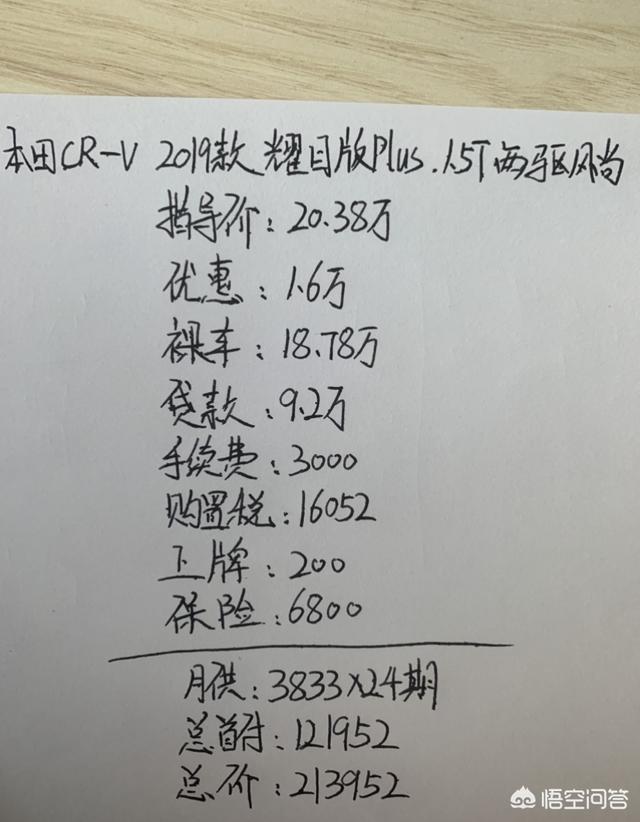 本田CR-V 2019款 耀目版Plus.1.5T两驱风尚
指导价:20.38万
优惠:1.6万
裸车:18.78万
贷款:9.2万
手续费:3000
购置税:16052
上牌:200
保险:6800
月供:3833×24期
总首付:121952
总价:213952
悟空问答